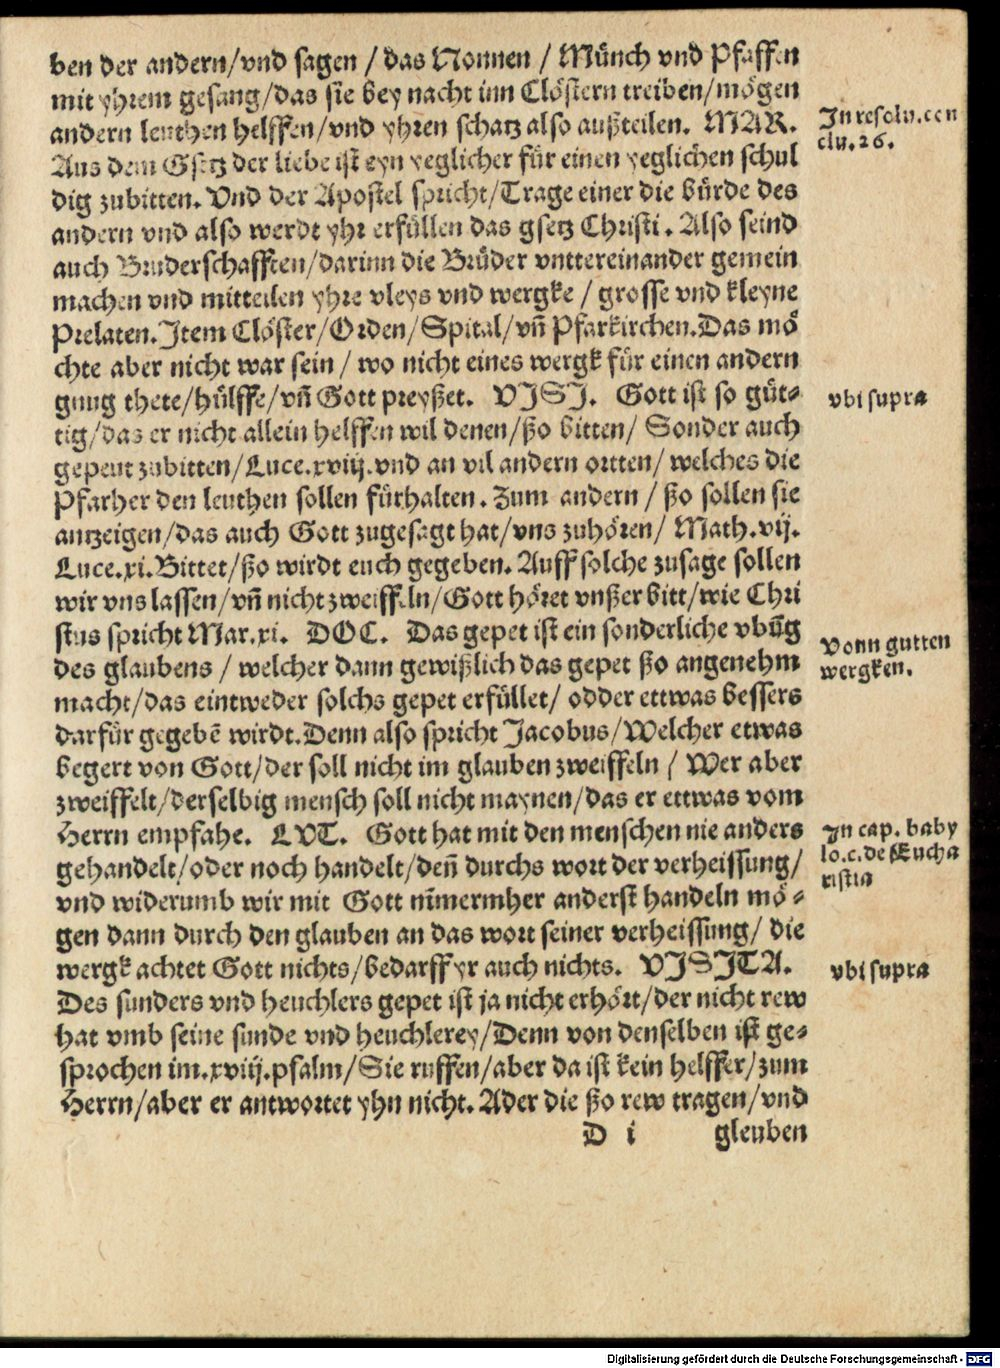 ben der andern/vnd sagen / das Nonnen / Münch vnd Pfaffen
mit yhrem gesang/das sie bey nacht inn Clöstern treiben/mögen
andern leuthen helffen/vnd yhren schatz also außteilen. MAR.
In resolu.con
clu.26.
Aus dem Gsetz der liebe ist eyn yeglicher für einen yeglichen schul
dig zubitten. Vnd der Apostel spricht/Trage einer die bürde des
andern vnd also werdt yhr erfüllen das gsetz Christi. Also seind
auch Bruderschafften/darinn die Brüder vnttereinander gemein
machen vnd mitteilen yhre vleys vnd wergke / grosse vnd kleyne
Prelaten. Item Clöster/Orden/Spital/vñ Pfarkirchen.Das mö
chte aber nicht war sein / wo nicht eines wergk für einen andern
gnug thete/hülffe/vñ Gott preyßet. VISI. Gott ist so güt-
vbi supra
tig/das er nicht allein helffen wil denen/ßo bitten/ Sonder auch
gepeut zubitten/Luce.xviij.vnd an vil andern ortten/ welches die
Pfarher den leuthen sollen fürhalten. Zum andern / ßo sollen sie
antzeigen/das auch Gott zugesagt hat/vns zuhören/ Math.vij.
Luce.xi.Bittet/ßo wirdt euch gegeben. Auff solche zusage sollen
wir vns lassen/vñ nicht zweiffeln/Gott höret vnßer bitt/wie Chri
stus spricht Mar.xi. DOC. Das gepet ist ein sonderliche vbūg
Vonn gutten
wergken.
des glaubens / welcher dann gewißlich das gepet ßo angenehm
macht/das eintweder solchs gepet erfüllet/ odder ettwas bessers
darfür gegebē wirdt.Denn also spricht Jacobus/Welcher etwas
begert von Gott/der soll nicht im glauben zweiffeln / Wer aber
zweiffelt/derselbig mensch soll nicht maynen/das er ettwas vom
Herrn empfahe. LVT. Gott hat mit den menschen nie anders
In cap. baby
lo.c.de Eucha
ristia
gehandelt/oder noch handelt/deñ durchs wort der verheissung/
vnd widerumb wir mit Gott nim̄ermher anderst handeln mö-
gen dann durch den glauben an das wort seiner verheissung/ die
wergk achtet Gott nichts/bedarff yr auch nichts. VISITA.
vbi supra
Des sunders vnd heuchlers gepet ist ja nicht erhört/der nicht rew
hat vmb seine sunde vnd heuchlerey/Denn von denselben ist ge-
sprochen im.xviij.psalm/Sie ruffen/aber da ist kein helffer/zum
Herrn/aber er antwortet yhn nicht. Ader die ßo rew tragen/vnd
D i gleuben
Digitalisierung gefördert durch die Deutsche Forschungsgemeinschaft - DFG